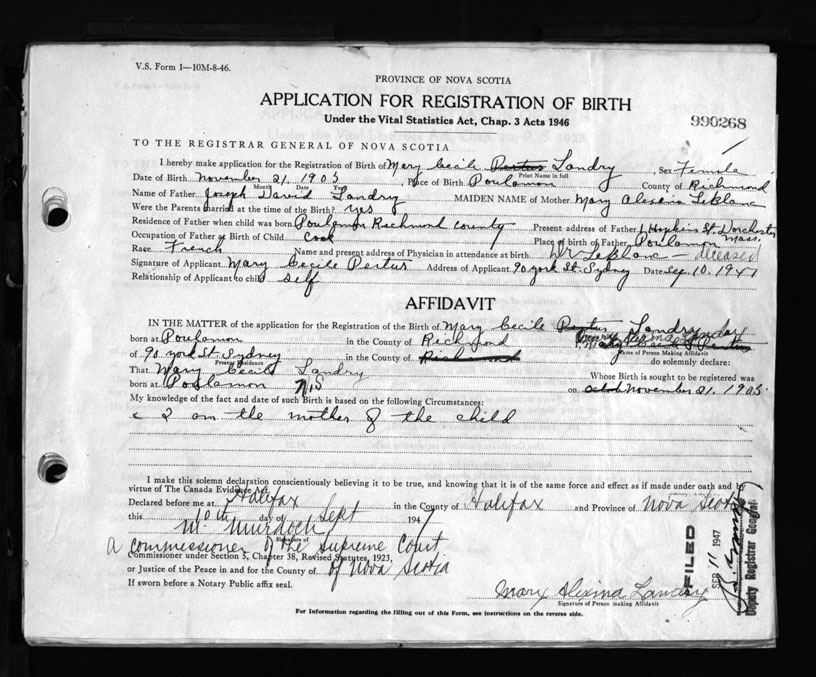 V.S. Form 1—10M-8-46.
PROVINCE OF NOVA SCOTIA
APPLICATION FOR REGISTRATION OF BIRTH
Under the Vital Statistics Act, Chap. 3 Acts 1946
990268
TO THE REGISTRAR GENERAL OF NOVA SCOTIA
I hereby make application for the Registration of Birth of Mary Cecile Pertus Landry, Sex Female
Print Name in full
Date of Birth November 21, 1903, Place of Birth Poulamon County of Richmond
Month Date Year
Name of Father Joseph David Landry MAIDEN NAME of Mother Mary Alexina LeBlanc
Were the Parents married at the time of the Birth? yes
Residence of Father when child was born Poulamon Richmond County Present address of Father 1 Hopkins St. Dorchester Mass.
Occupation of Father at Birth of Child Cook Place of birth of Father Poulamon
Race French Name and present address of Physician in attendance at birth Dr LeBlanc — deceased
Signature of Applicant Mary Cecile Pertus Address of Applicant 90 York St. Sydney Date Sep. 10. 1947
Relationship of Applicant to child self
AFFIDAVIT
IN THE MATTER of the application for the Registration of Birth of Mary Cecile Pertus Landry
born at Poulamon in the County of Richmond
Name of Person Making Affidavit
of 90 York St. Sydney in the County of Richmond do solemnly declare:
Present Residence
That Mary Cecile Landry Whose Birth is sought to be registered was
born at Poulamon N.S on November 21. 1903.
My knowledge of the fact and date of such Birth is based on the following Circumstances:
I am the mother of the child
I make this solemn declaration conscientiously believing it to be true, and knowing that it is of the same force and effect as if made under oath and by
virtue of The Canada Evidence Act.
Declared before me at Halifax in the County of Halifax and Province of Nova Scotia
this 10th day of Sept 1947
Murdoch
Signature of
a commissioner of the Supreme Court
Commissioner under Section 5, Chapter 38, Revised Statutes, 1923,
or Justice of the Peace in and for the County of of Nova Scotia
If sworn before a Notary Public affix seal.
Mary Alexina Landry
Signature of Person making Affidavit
FILED
SEP 11 1947
Deputy Registrar General
For Information regarding the filling out of this Form, see instructions on the reverse side.